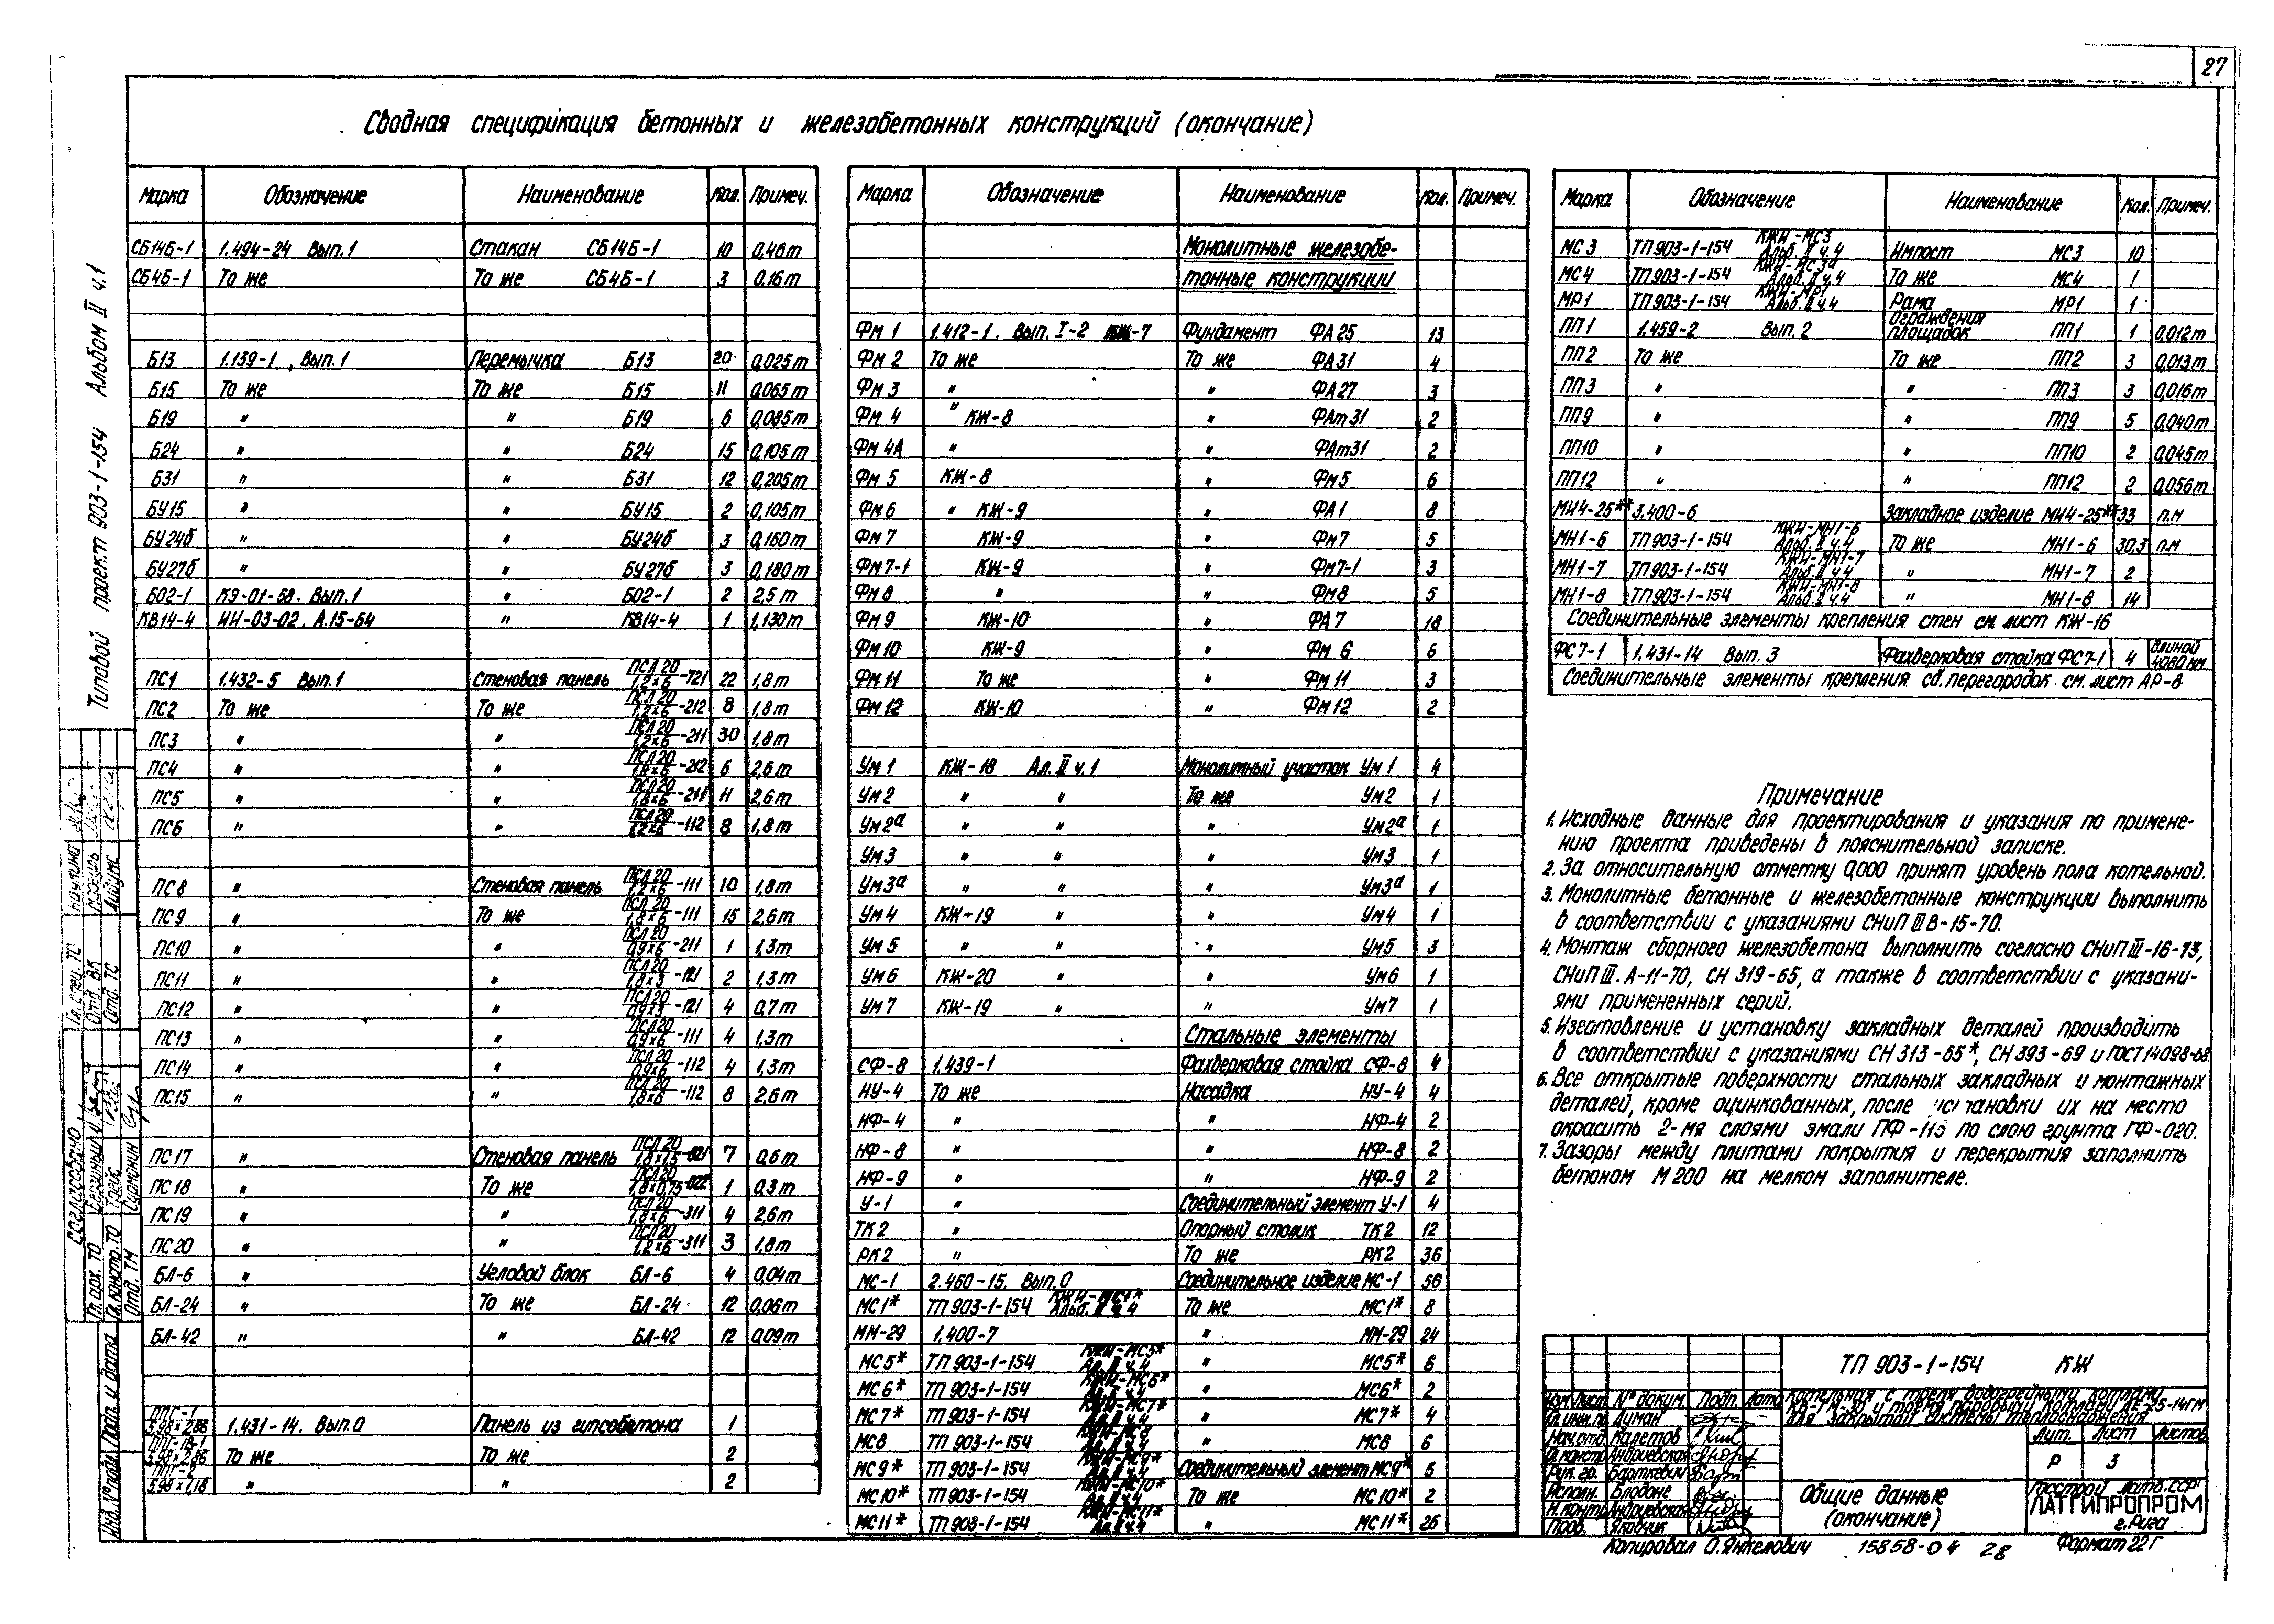 27
Сводная спецификация бетонных и железобетонных конструкций (окончание)
Типовой проект 903-1-154 Альбом II ч.1
Марка Обозначение Наименование Кол. Примеч.
СБ14Б-1 1.494-24 Вып.1 Стакан СБ14Б-1 10 0,46т
СБ4Б-1 То же То же СБ4Б-1 3 0,16т
Б13 1.139-1, Вып.1 Перемычка Б13 20 0,025т
Б15 То же То же Б15 11 0,065т
Б19 " " Б19 6 0,085т
Б24 " " Б24 15 0,105т
Б31 " " Б31 12 0,205т
БУ15 " " БУ15 2 0,105т
БУ24б " " БУ24б 3 0,160т
БУ27б " " БУ27б 3 0,180т
БО2-1 КЭ-01-58. Вып.1 " БО2-1 2 2,5т
КВ14-4 ИИ-03-02. А.15-64 " КВ14-4 1 1,130т
ПС1 1.432-5 Вып.1 Стеновая панель ПСЛ20 1,2х6 -721 22 1,8т
ПС2 То же То же ПСЛ20 1,2х6 -212 8 1,8т
ПС3 " " ПСЛ20 1,2х6 -211 30 1,8т
ПС4 " " ПСЛ20 1,8х6 -212 6 2,6т
ПС5 " " ПСЛ20 1,8х6 -211 11 2,6т
ПС6 " " ПСЛ20 1,2х6 -112 8 1,8т
ПС8 " Стеновая панель ПСЛ20 1,2х6 -111 10 1,8т
ПС9 " То же ПСЛ20 1,8х6 -111 15 2,6т
ПС10 " " ПСЛ20 0,9х6 -211 1 1,3т
ПС11 " " ПСЛ20 1,8х3 -121 2 1,3т
ПС12 " " ПСЛ20 0,9х3 -121 4 0,7т
ПС13 " " ПСЛ20 0,9х6 -111 4 1,3т
ПС14 " " ПСЛ20 0,9х6 -112 4 1,3т
ПС15 " " ПСЛ20 1,8х6 -112 8 2,6т
ПС17 " Стеновая панель ПСЛ20 1,8х1,5 -821 7 0,6т
ПС18 " То же ПСЛ20 1,8х0,75 -822 1 0,3т
ПС19 " " ПСЛ20 1,8х6 -311 4 2,6т
ПС20 " " ПСЛ20 1,2х6 -311 3 1,8т
БЛ-6 " Угловой блок БЛ-6 4 0,04т
БЛ-24 " То же БЛ-24 12 0,06т
БЛ-42 " " БЛ-42 12 0,09т
ППГ-1 5,98х2,86 1.431-14. Вып.0 Панель из гипсобетона 1
ППГ-1В-1 5,98х2,86 То же То же 2
ППГ-2 5,98х1,18 " " 2
Марка Обозначение Наименование Кол. Примеч.
Монолитные железобе-
тонные конструкции
Фм 1 1.412-1. Вып. I-2 КЖ-7 Фундамент ФА25 13
Фм 2 То же То же ФА31 4
Фм 3 " " ФА27 3
Фм 4 " КЖ-8 " ФАт31 2
Фм 4А " " ФАт31 2
Фм 5 КЖ-8 " Фм5 6
Фм 6 " КЖ-9 " ФА1 8
Фм 7 КЖ-9 " Фм7 5
Фм7-1 КЖ-9 " Фм7-1 3
Фм 8 " " Фм8 5
Фм 9 КЖ-10 " ФА7 18
Фм 10 КЖ-9 " Фм 6 6
Фм 11 То же " Фм 11 3
Фм 12 КЖ-10 " Фм 12 2
Ум 1 КЖ-18 Ал. II ч.1 Монолитный участок Ум 1 4
Ум 2 " " То же Ум2 1
Ум2а " " " Ум2а 1
Ум3 " " " Ум3 1
Ум3а " " " Ум3а 1
Ум 4 КЖ-19 " " Ум4 1
Ум 5 " " " Ум5 3
Ум 6 КЖ-20 " " Ум6 1
Ум 7 КЖ-19 " " Ум7 1
Стальные элементы
СФ-8 1.439-1 Фахверковая стойка СФ-8 4
НУ-4 То же Насадка НУ-4 4
НФ-4 " " НФ-4 2
НФ-8 " " НФ-8 2
НФ-9 " " НФ-9 2
У-1 " Соединительный элемент У-1 4
ТК2 " Опорный столик ТК2 12
РК2 " То же РК2 36
МС-1 2.460-15. Вып.0 Соединительное изделие МС-1 56
МС1* ТП 903-1-154 КЖИ-МС1* Альб. II ч.4 То же МС1* 8
ММ-29 1.400-7 " ММ-29 24
МС5* ТП 903-1-154 КЖИ-МС5* Ал. II ч.4 " МС5* 6
МС6* ТП 903-1-154 КЖИ-МС6* Ал. II ч.4 " МС6* 2
МС7* ТП 903-1-154 КЖИ-МС7* Ал. II ч.4 " МС7* 4
МС8 ТП 903-1-154 КЖИ-МС8 Ал. II ч.4 " МС8 6
МС9* ТП 903-1-154 КЖИ-МС9* Ал. II ч.4 Соединительный элемент МС9* 6
МС10* ТП 903-1-154 КЖИ-МС10* Ал. II ч.4 То же МС10* 2
МС11* ТП 903-1-154 КЖИ-МС11* Ал. II ч.4 " МС11* 26
Марка Обозначение Наименование Кол. Примеч.
МС3 ТП 903-1-154 КЖИ-МС3 Альб. II ч.4 Импост МС3 10
МС4 ТП 903-1-154 КЖИ-МС3а Альб. II ч.4 То же МС4 1
МР1 ТП 903-1-154 КЖИ-МР1 Альб. II ч.4 Рама МР1 1
ПП1 1.459-2 Вып. 2 Ограждения площадок ПП1 1 0,012т
ПП2 То же То же ПП2 3 0,013т
ПП3 " " ПП3 3 0,016т
ПП9 " " ПП9 5 0,040т
ПП10 " " ПП10 2 0,045т
ПП12 " " ПП12 2 0,056т
МИ4-25** 3.400-6 Закладное изделие МИ4-25** 33 п.м
МН1-6 ТП 903-1-154 КЖИ-МН1-6 Альб. II ч.4 То же МН1-6 30,3 п.м
МН1-7 ТП 903-1-154 КЖИ-МН1-7 Альб. II ч.4 " МН1-7 2
МН1-8 ТП 903-1-154 КЖИ-МН1-8 Альб. II ч.4 " МН1-8 14
Соединительные элементы крепления стен см. лист КЖ-16
ФС7-1 1.431-14 Вып. 3 Фахверковая стойка ФС7-1 4 длиной 4080мм
Соединительные элементы крепления сб. перегородок см. лист АР-8
Примечание
1. Исходные данные для проектирования и указания по примене-
нию проекта приведены в пояснительной записке.
2. За относительную отметку 0,000 принят уровень пола котельной.
3. Монолитные бетонные и железобетонные конструкции выполнить
в соответствии с указаниями СНиП III В-15-70.
4. Монтаж сборного железобетона выполнить согласно СНиП III-16-73,
СНиП III. А-11-70, СН 319-65, а также в соответствии с указани-
ями примененных серий.
5. Изготовление и установку закладных деталей производить
в соответствии с указаниями СН 313-65*, СН 393-69 и ГОСТ 14098-68
6. Все открытые поверхности стальных закладных и монтажных
деталей, кроме оцинкованных, после установки их на место
окрасить 2-мя слоями эмали ПФ-115 по слою грунта ГФ-020.
7. Зазоры между плитами покрытия и перекрытия заполнить
бетоном М200 на мелком заполнителе.
ТП 903-1-154 КЖ
Изм. Лист № докум. Подп. Дата
Котельная с тремя водогрейными котлами
КВ-ГМ-30 и тремя паровыми котлами ДЕ-25-14ГМ
для закрытой системы теплоснабжения
Гл. инж. пр. Думан
Нач. отд. Калетов
Гл. констр. Андриевская
Рук. гр. Барткевич
Исполн. Блодоне
Н. контр. Андриевская
Пров. Яковчик
Лит. Лист Листов
Р 3
Общие данные
(окончание)
Госстрой Латв.ССР
ЛАТГИПРОПРОМ
г. Рига
Копировал О.Янкелович 15858-04 28 Формат 22Г
Согласовано
Гл. спец. ТО
Отд. ВК
Отд. ТС
Гл. арх. ТО
Гл. констр. ТО
Отд. ТМ
Инв. № подл. Подп. и дата